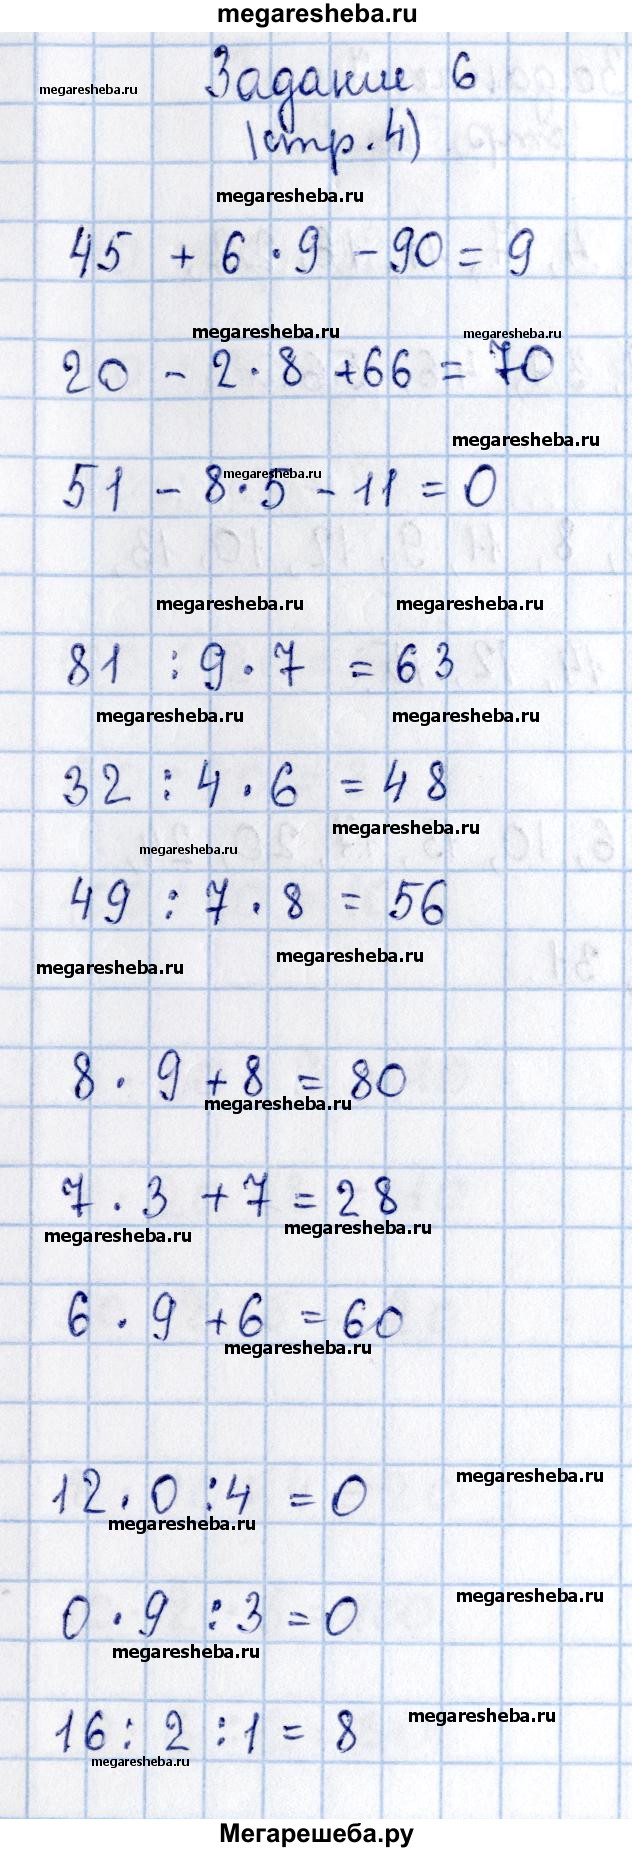 megaresheba.ru
Задание 6
megaresheba.ru
(стр. 4)
megaresheba.ru
45 + 6 · 9 - 90 = 9
megaresheba.ru megaresheba.ru
20 - 2 · 8 + 66 = 70
megaresheba.ru
megaresheba.ru
51 - 8 · 5 - 11 = 0
megaresheba.ru megaresheba.ru
81 : 9 · 7 = 63
megaresheba.ru megaresheba.ru
32 : 4 · 6 = 48
megaresheba.ru
megaresheba.ru
49 : 7 · 8 = 56
megaresheba.ru megaresheba.ru
8 · 9 + 8 = 80
megaresheba.ru
7 · 3 + 7 = 28
megaresheba.ru megaresheba.ru
6 · 9 + 6 = 60
megaresheba.ru
megaresheba.ru
12 · 0 : 4 = 0
megaresheba.ru
megaresheba.ru
0 · 9 : 3 = 0
megaresheba.ru
megaresheba.ru
16 : 2 : 1 = 8
megaresheba.ru
Мегарешеба.ру